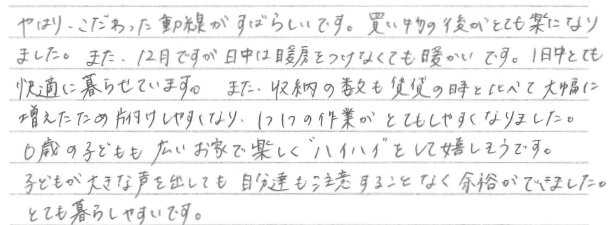 やはり、こだわった動線がすばらしいです。買い物の後がとても楽になり
ました。また、12月ですが日中は暖房をつけなくても暖かいです。1日中とても
快適に暮らせています。また、収納の数も賃貸の時と比べて大幅に
増えたため片付けしやすくなり、1つ1つの作業がとてもしやすくなりました。
0歳の子どもも広いお家で楽しく"ハイハイ"をして嬉しそうです。
子どもが大きな声を出しても自分達も注意することなく余裕ができました。
とても暮らしやすいです。